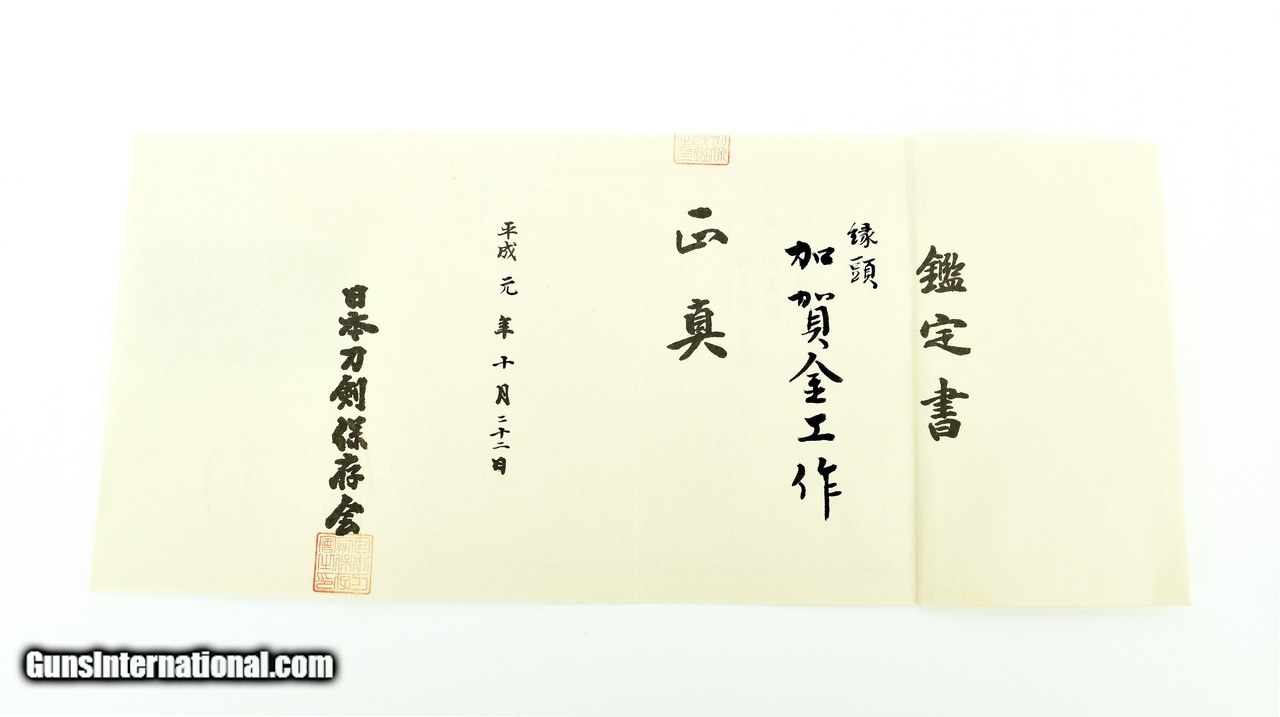 鑑定書
縁頭
加賀金工作
正真
平成元年十月二十二日
日本刀剣保存会
GunsInternational.com